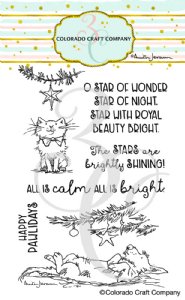 COLORADO CRAFT COMPANY
O STAR OF WONDER
STAR OF NIGHT,
STAR WITH ROYAL
BEAUTY BRIGHT.
The STARS are
brightly SHINING!
ALL IS calm ALL IS bright
HAPPY
PAWLIDAYS
©Colorado Craft Company